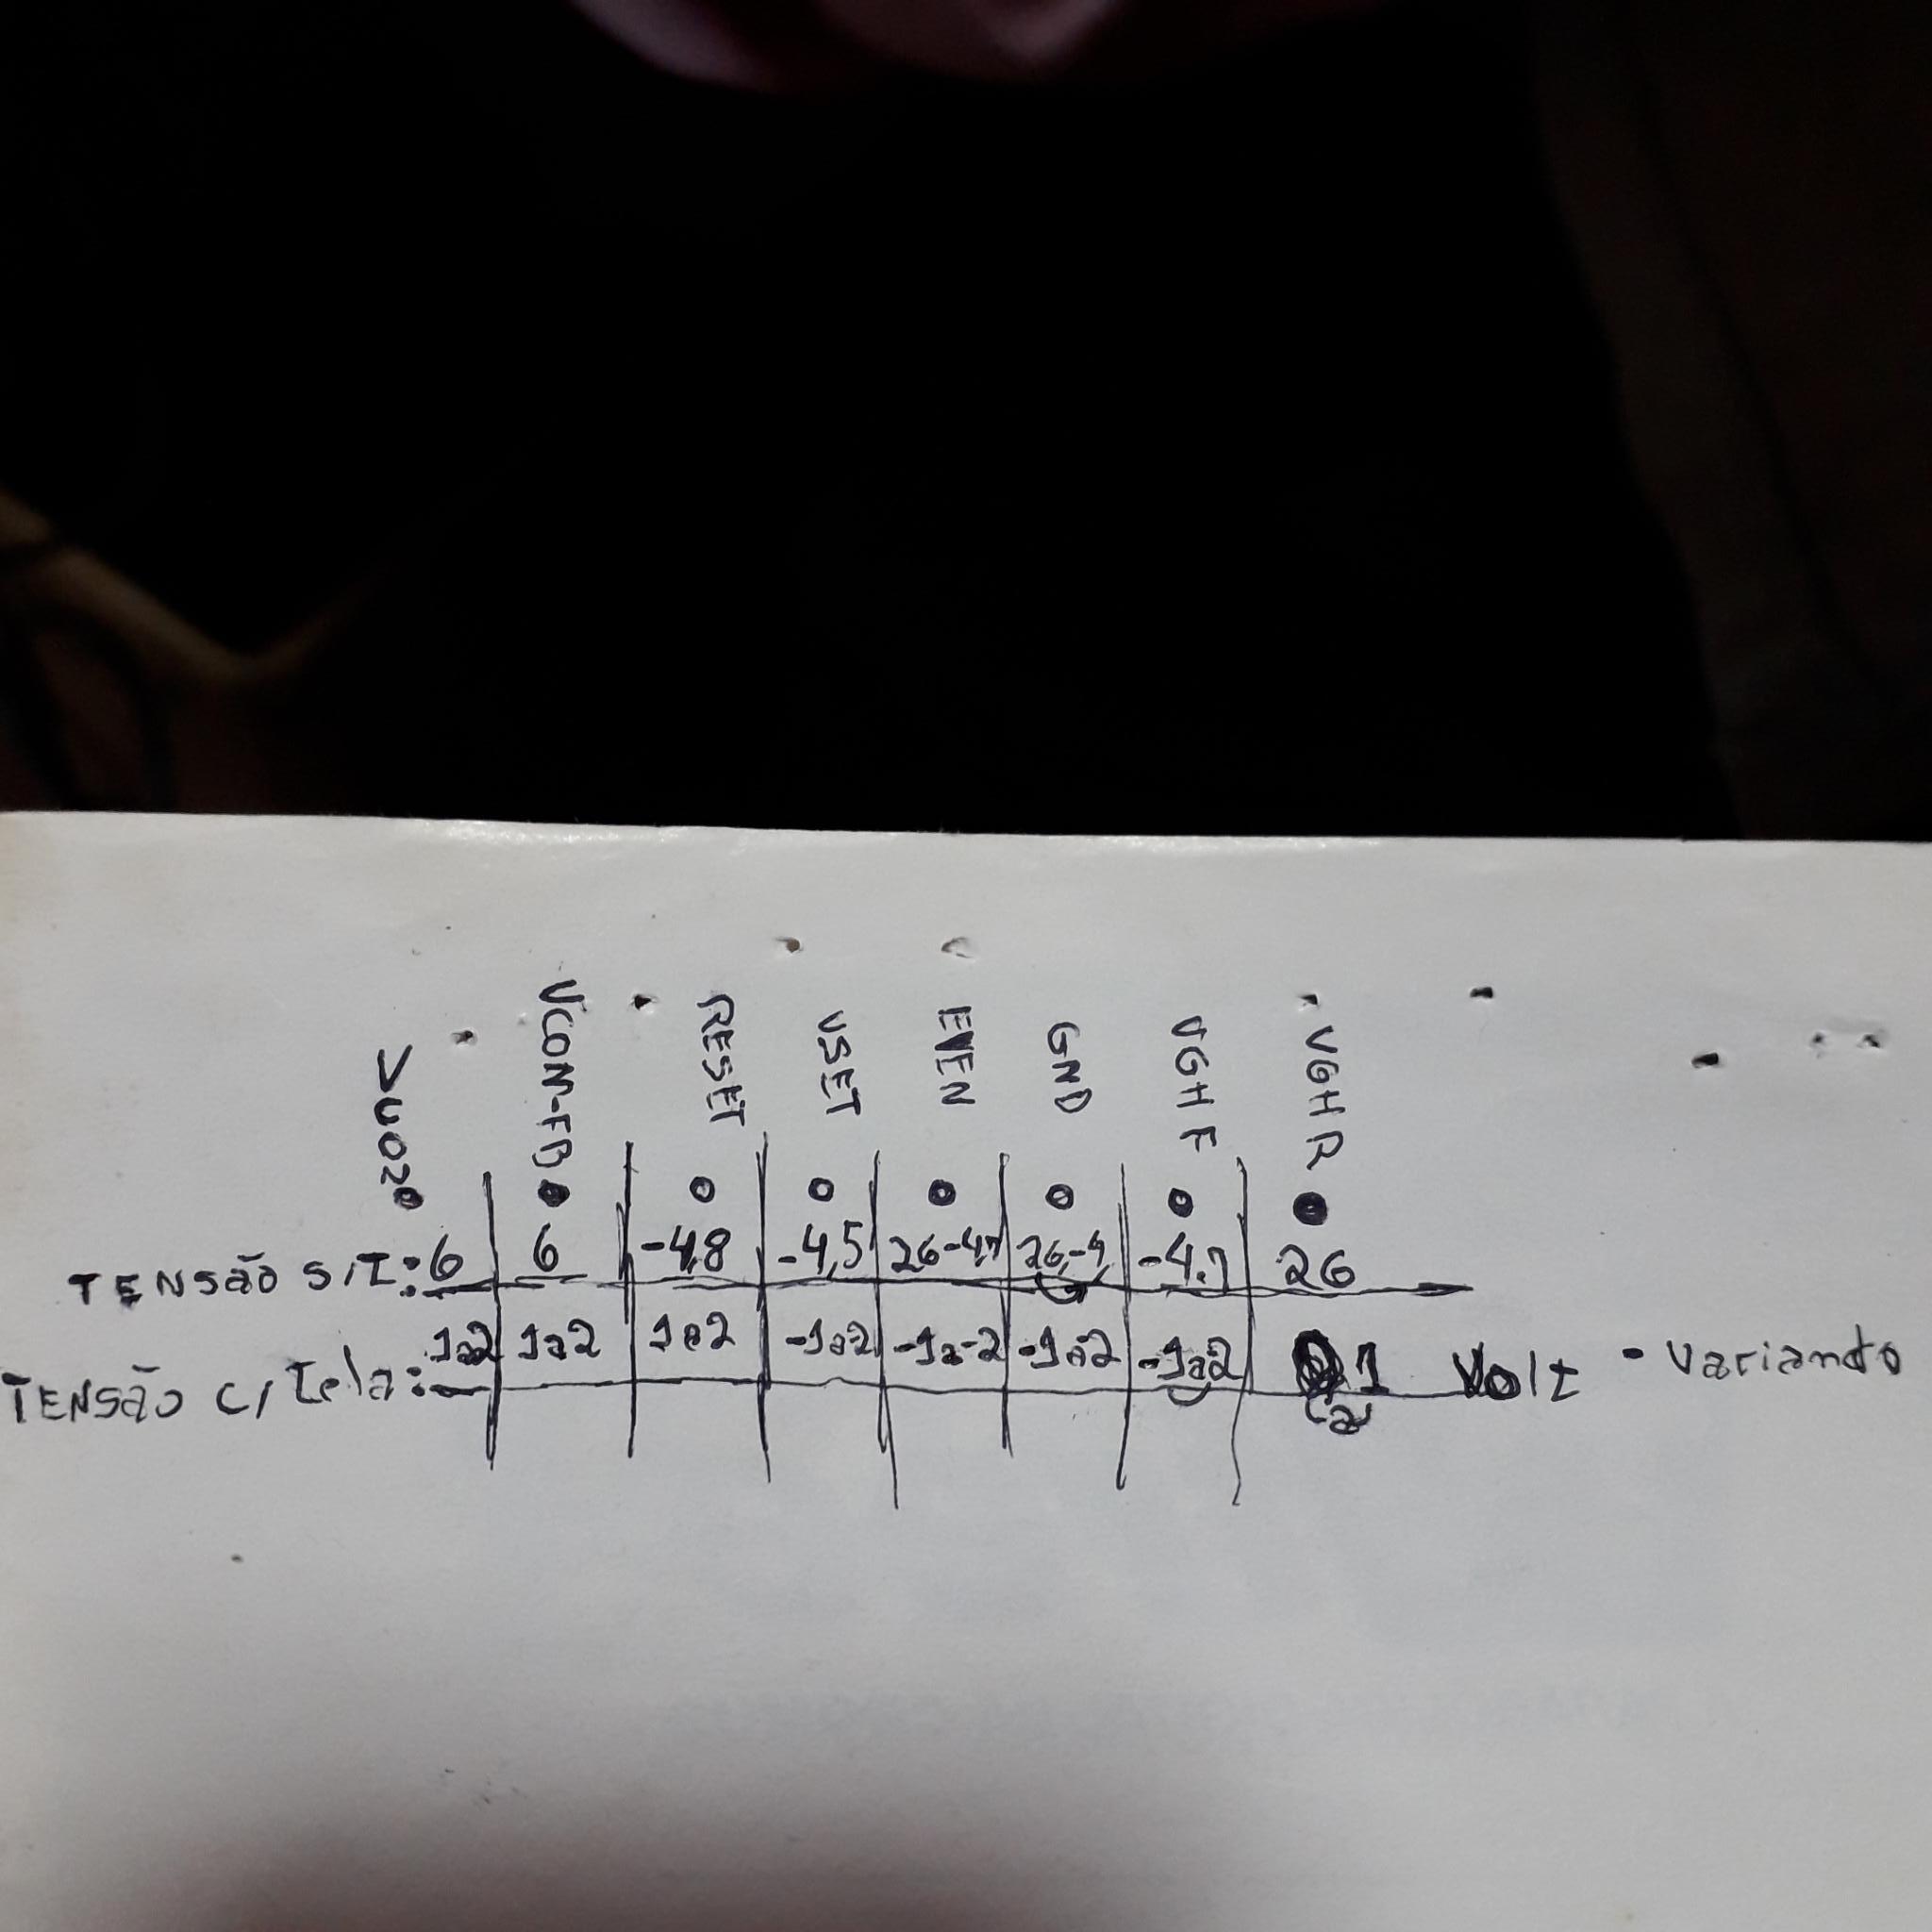 VCOM-FB RESET VSET EVEN GND VGH F VGH R
TENSÃO S/T: 6 6 -4,8 -4,5 26-4,7 26,-4, -4.7 26
TENSÃO C/Tela: 1a2 1a2 1a2 -1a2 -1a-2 -1a2 -1a2 1 Volt - Variando
(2)